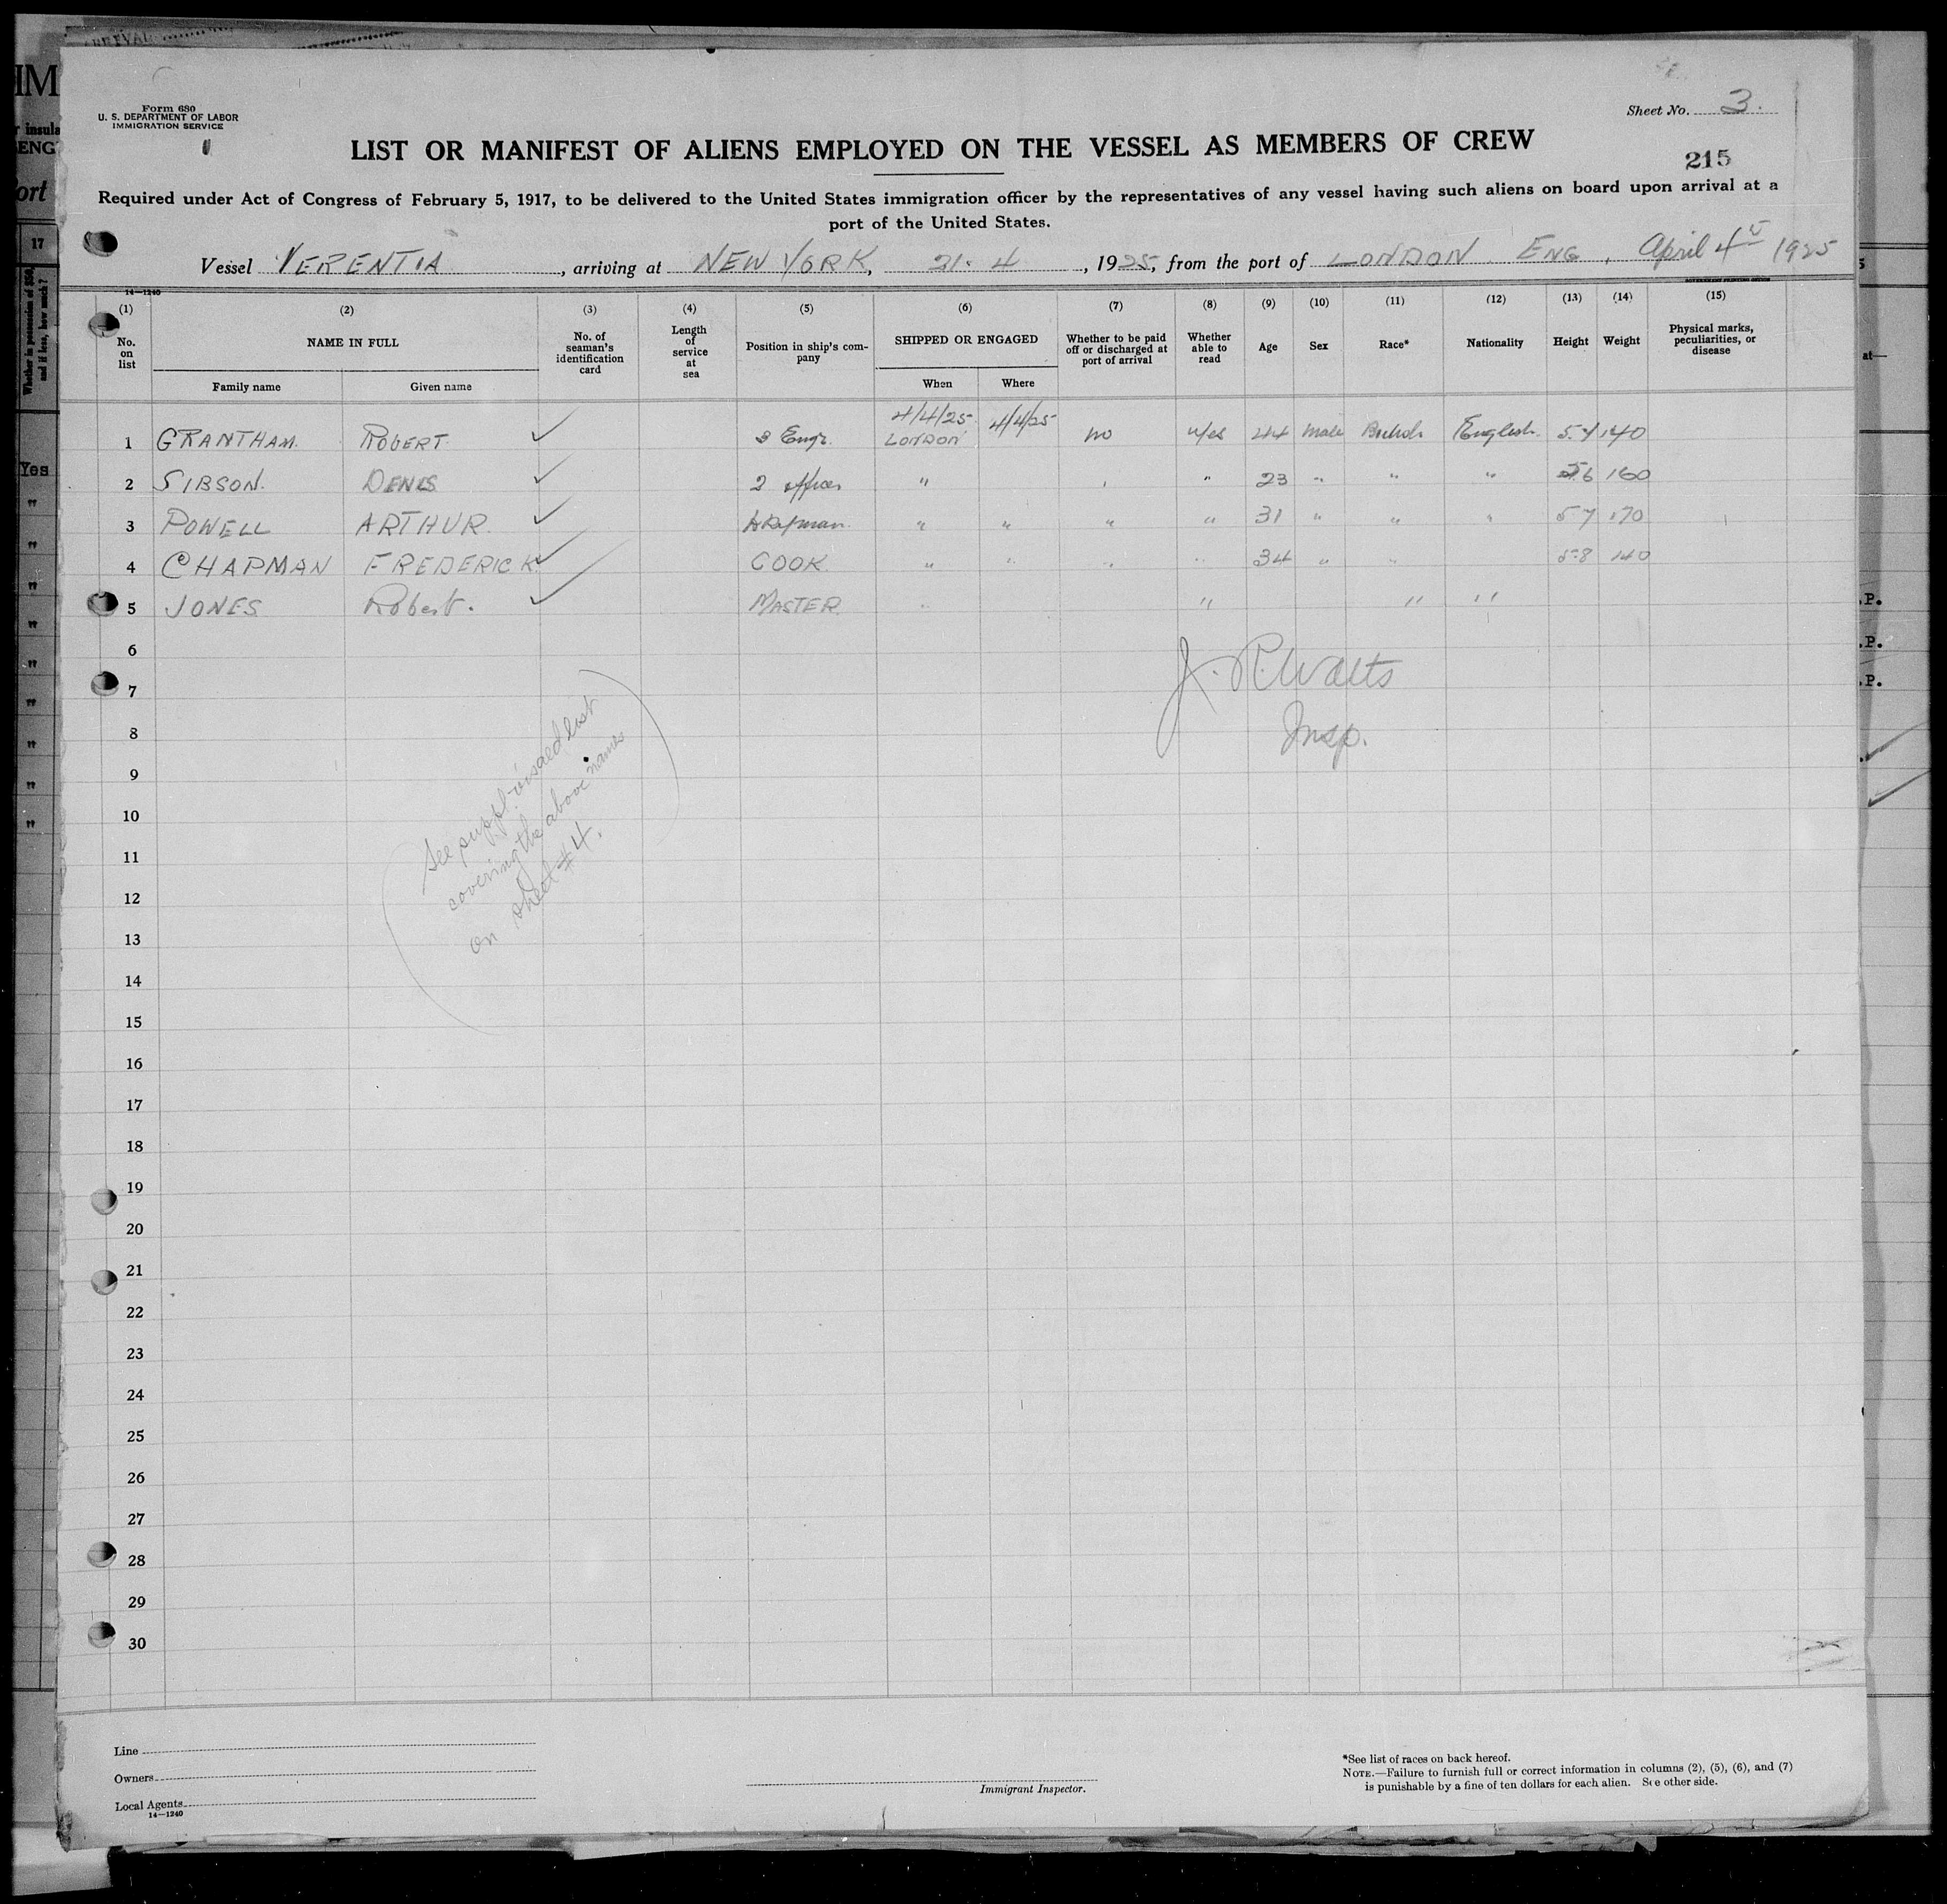 Form 680
U. S. DEPARTMENT OF LABOR
IMMIGRATION SERVICE
Sheet No. 3.
LIST OR MANIFEST OF ALIENS EMPLOYED ON THE VESSEL AS MEMBERS OF CREW
215
Required under Act of Congress of February 5, 1917, to be delivered to the United States immigration officer by the representatives of any vessel having such aliens on board upon arrival at a
port of the United States.
Vessel VERENTIA, arriving at NEW YORK, 21. 4, 1925, from the port of LONDON ENG, April 4 1925
14—1240
(1) (2) (3) (4) (5) (6) (7) (8) (9) (10) (11) (12) (13) (14) (15)
No. on list NAME IN FULL No. of seaman's identification card Length of service at sea Position in ship's company SHIPPED OR ENGAGED Whether to be paid off or discharged at port of arrival Whether able to read Age Sex Race* Nationality Height Weight Physical marks, peculiarities, or disease
Family name Given name When Where
4/4/25 4/4/25
1 GRANTHAM. ROBERT. ✓ 3 Engr. LONDON no yes 44 male English. 140
2 SIBSON. DENIS ✓ 2 officer " " 23 " " " 5 6 160
3 POWELL ARTHUR. ✓ " " " " 31 " " " 5 7 170
4 CHAPMAN FREDERICK. ✓ COOK. " " " " 34 " " 5-8 140
5 JONES Robert. ✓ MASTER. " " " "
6
J. R. Watts
7
8
Insp.
9
See suppl. visaed list
covering the above names
on sheet #4.
10
11
12
13
14
15
16
17
18
19
20
21
22
23
24
25
26
27
28
29
30
Line
Owners
Local Agents
14—1240
Immigrant Inspector.
*See list of races on back hereof.
NOTE.—Failure to furnish full or correct information in columns (2), (5), (6), and (7)
is punishable by a fine of ten dollars for each alien. See other side.